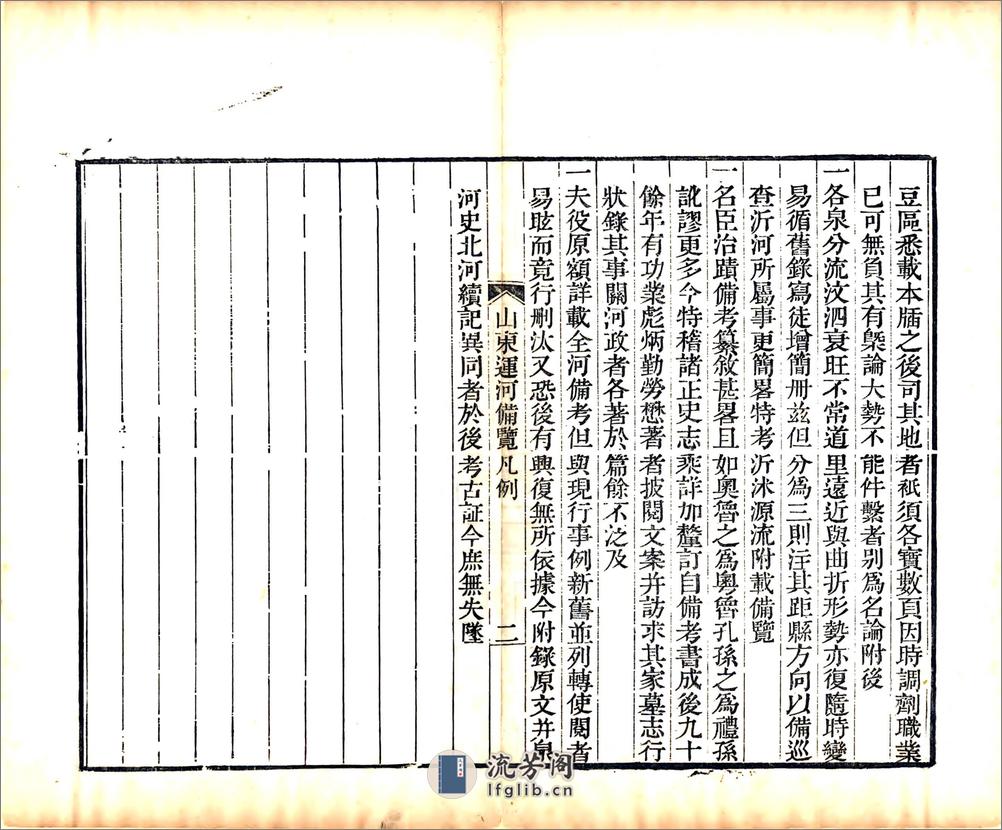 豆區悉載本牐之後司其地者祇須各寶數頁因時調劑職業
已可無負其有槩論大勢不能件繫者别為名論附後
一各泉分流汶泗衰旺不常道里遠近與曲折形勢亦復隨時變
易循舊錄寫徒增簡册兹但分為三則注其距縣方向以備巡
查沂河所屬事更簡畧特考沂沭源流附載備覽
一名臣治蹟備考纂敘甚畧且如奥魯之為粤魯孔孫之為禮孫
訛謬更多今特稽諸正史志乘詳加釐訂自備考書成後九十
餘年有功業彪炳勤勞懋著者披閱文案并訪求其家墓志行
狀錄其事關河政者各著於篇餘不泛及
一夫役原額詳載全河備考但與現行事例新舊並列轉使閱者
易眩而竟行刪汰又恐後有興復無所依據今附錄原文并泉
山東運河備覽 凡例 二
河史北河續記異同者於後考古証今庶無失墜
流芳阁
lfglib.cn